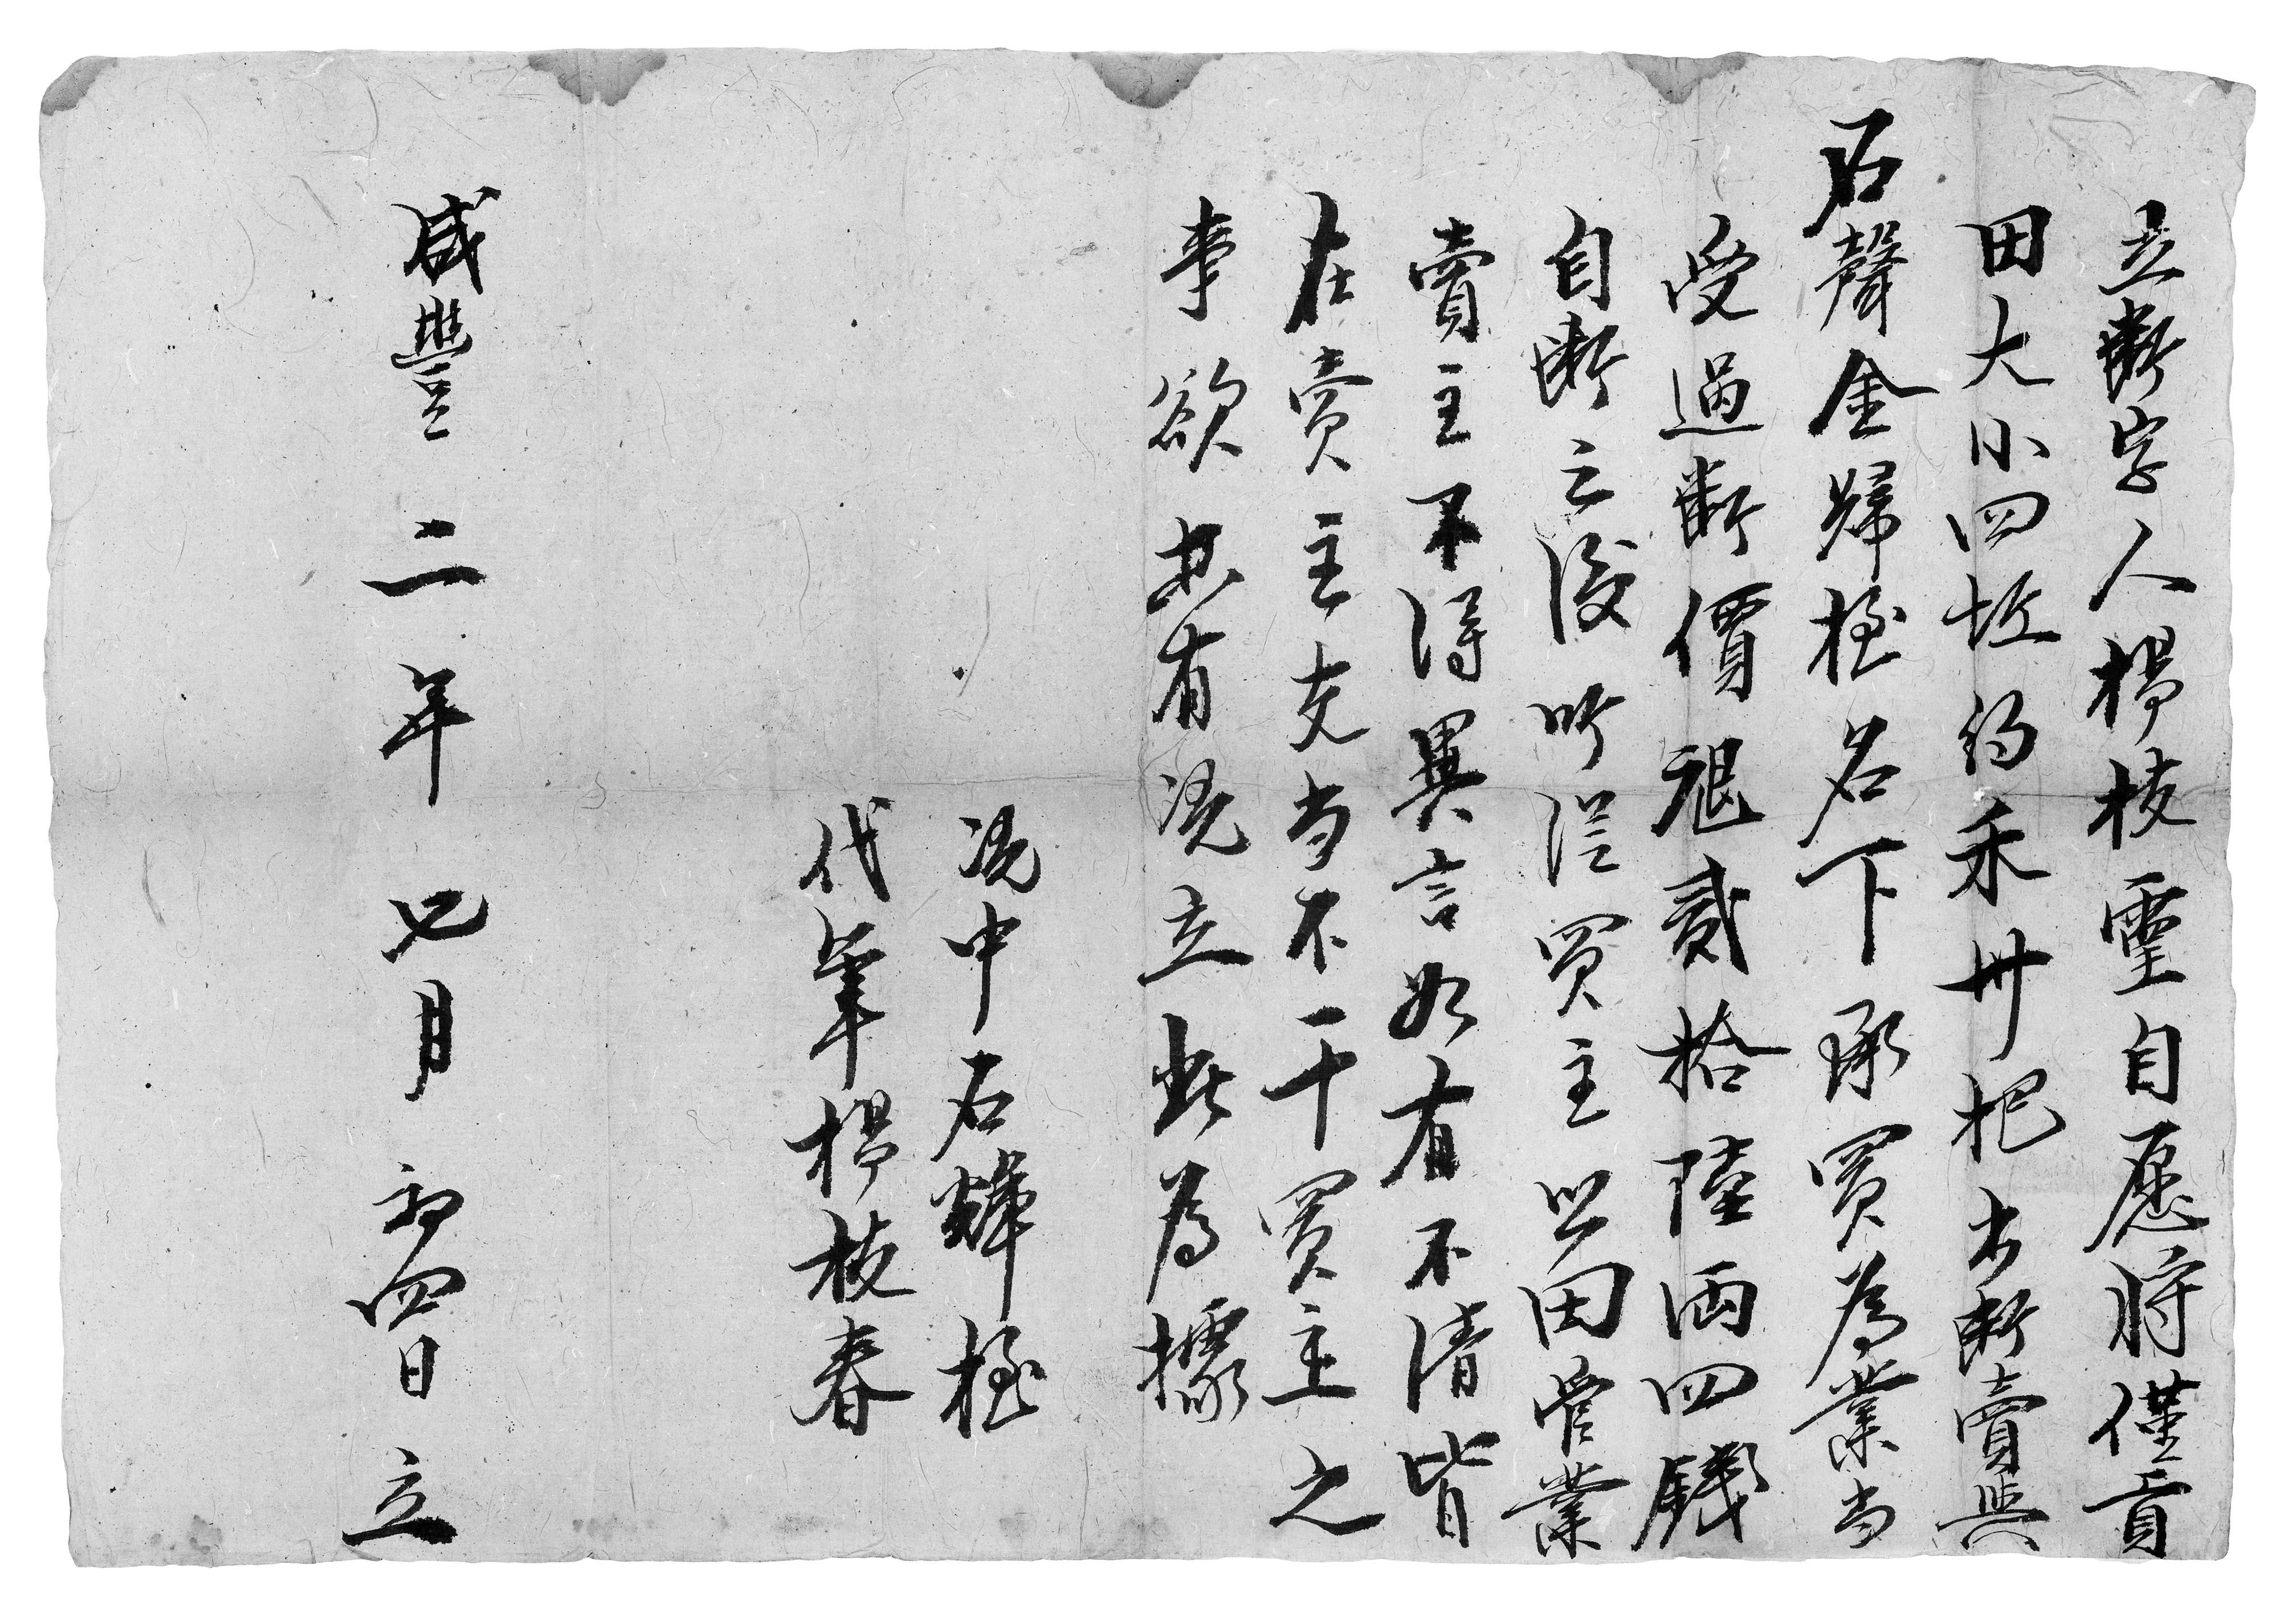 立断字人楊枝靈自愿将僅貢
田大小四坵约禾卅把出断賣與
石聲金歸極名下承買為業当
受過断價銀贰拾陸両四錢
自断之後听從買主照田管業
賣主不得異言如有不清皆
在卖主支当不干買主之
事欲共有凭立此為據
凭中石輝極
代筆楊枝春
咸豐二年七月初四日立